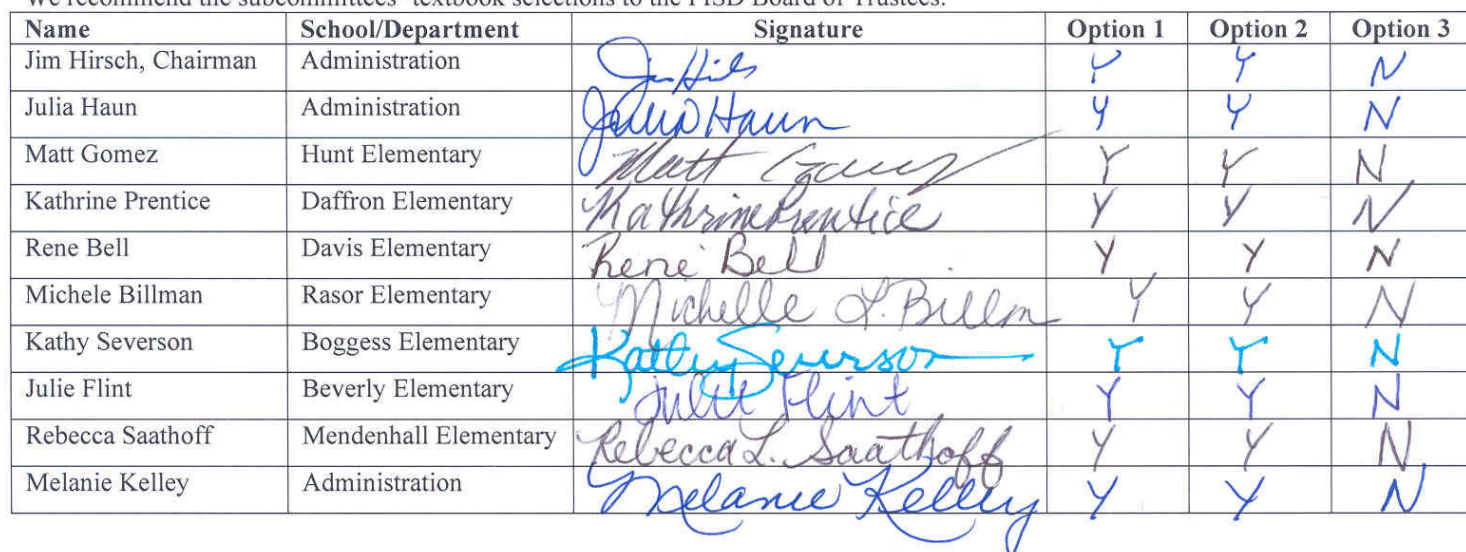 We recommend the subcommittees' textbook selections to the PISD Board of Trustees.
Name School/Department Signature Option 1 Option 2 Option 3
Jim Hirsch, Chairman Administration Y Y N
Julia Haun Administration Julia Haun Y Y N
Matt Gomez Hunt Elementary Matt Gomez Y Y N
Kathrine Prentice Daffron Elementary Kathrine Prentice Y Y N
Rene Bell Davis Elementary Rene Bell Y Y N
Michele Billman Rasor Elementary Michelle L. Billm Y Y N
Kathy Severson Boggess Elementary Kathy Severson Y Y N
Julie Flint Beverly Elementary Julie Flint Y Y N
Rebecca Saathoff Mendenhall Elementary Rebecca L. Saathoff Y Y N
Melanie Kelley Administration Melanie Kelley Y Y N